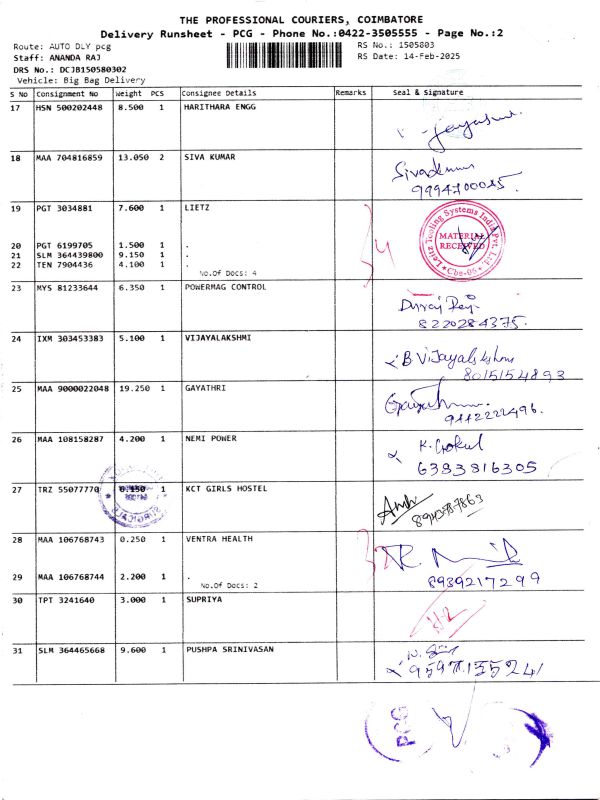 THE PROFESSIONAL COURIERS, COIMBATORE
Delivery Runsheet - PCG - Phone No.:0422-3505555 - Page No.:2
Route: AUTO DLY pcg
RS No.: 1505803
Staff: ANANDA RAJ
RS Date: 14-Feb-2025
DRS No.: DCJB150580302
Vehicle: Big Bag Delivery
S No Consignment No Weight PCS Consignee Details Remarks Seal & Signature
17 HSN 500202448 8.500 1 HARITHARA ENGG
18 MAA 704816859 13.050 2 SIVA KUMAR
9994700045.
19 PGT 3034881 7.600 1 LIETZ
Leitz Tooling Systems India Pvt. Ltd
MATERIAL
RECEIVED
Cbe-06
20 PGT 6199705 1.500 1 .
21 SLM 364439800 9.150 1 .
22 TEN 7904436 4.100 1 .
No.Of Docs: 4
23 MYS 81233644 6.350 1 POWERMAG CONTROL
8220284375.
24 IXM 303453383 5.100 1 VIJAYALAKSHMI
B Vijayalakshmi
8015154893
25 MAA 9000022048 19.250 1 GAYATHRI
9442222496.
26 MAA 108158287 4.200 1 NEMI POWER
K. Gokul
6383816305
27 TRZ 55077770 0.150 1 KCT GIRLS HOSTEL
28 MAA 106768743 0.250 1 VENTRA HEALTH
29 MAA 106768744 2.200 1 .
No.Of Docs: 2
8939217299
30 TPT 3241640 3.000 1 SUPRIYA
31 SLM 364465668 9.600 1 PUSHPA SRINIVASAN
9597135241
PCG